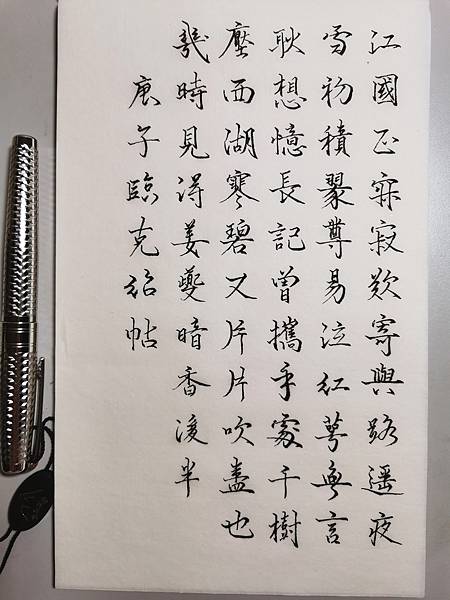 江國正寂寂歎寄與路遙夜
雪初積翠尊易泣紅萼無言
耿想憶長記曾攜手處千樹
壓西湖寒碧又片片吹盡也
幾時見得姜夔暗香後半
庚子臨克紹帖